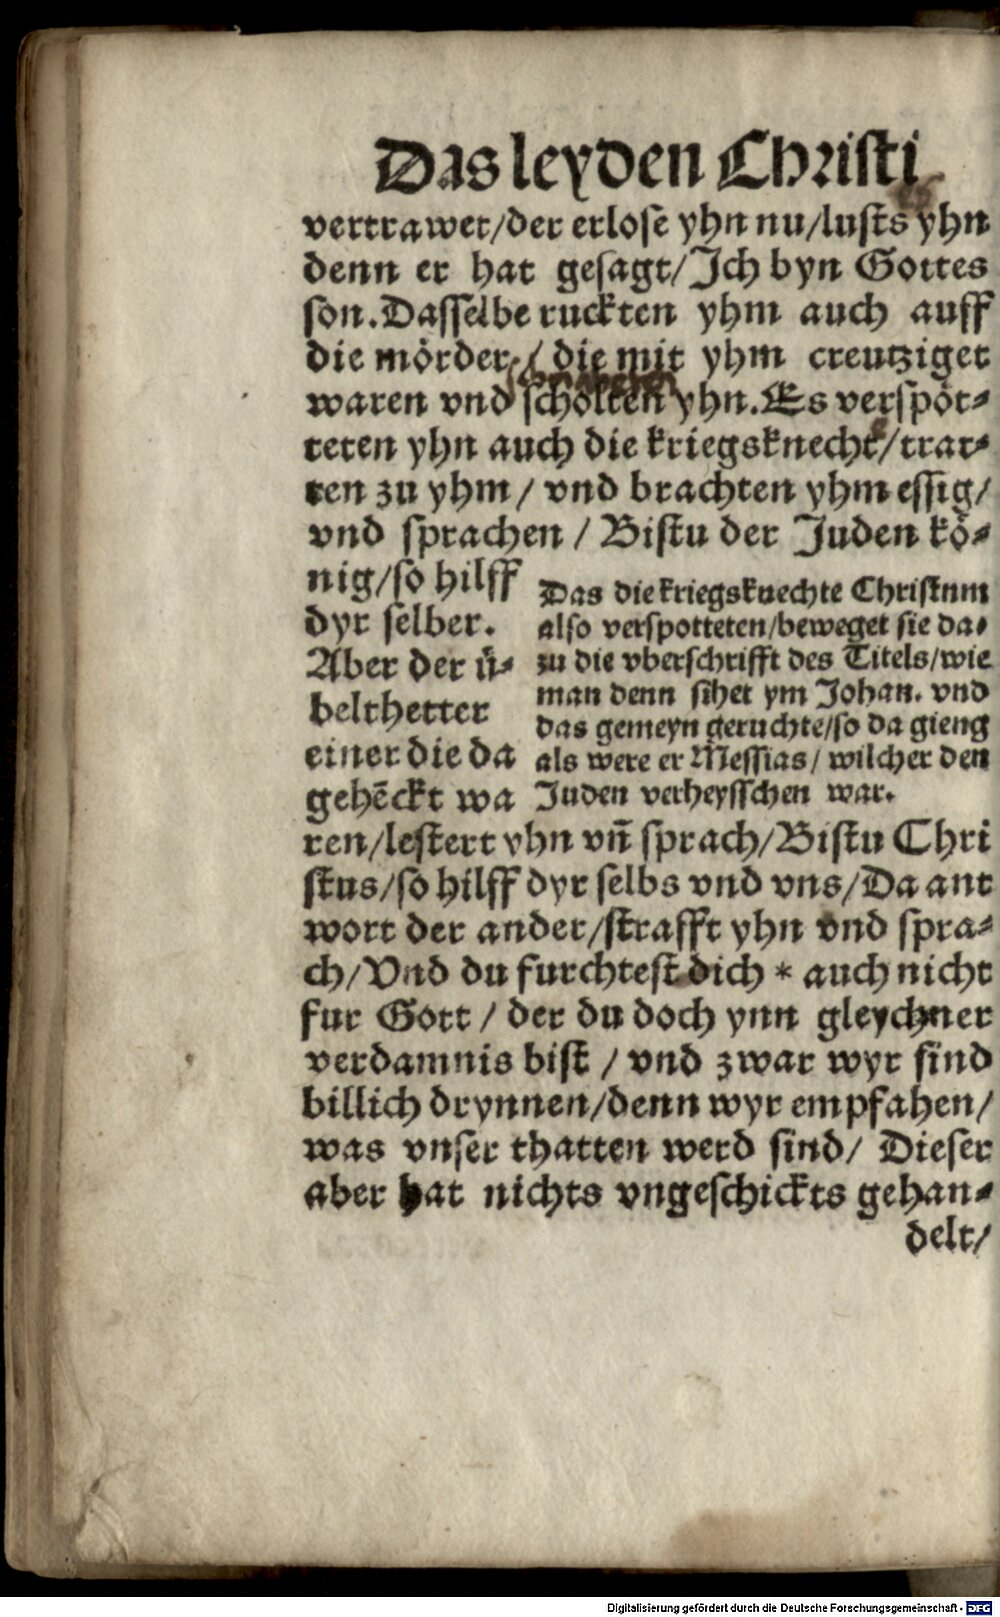 Das leyden Christi
vertrawet/der erlose yhn nu/lusts yhn
denn er hat gesagt/Ich byn Gottes
son.Dasselbe ruckten yhm auch auff
die mörder/ die mit yhm creutziget
waren vnd scholten yhn.Es verspöt⸗
teten yhn auch die kriegsknecht/trat⸗
ten zu yhm/ vnd brachten yhm essig/
vnd sprachen / Bistu der Juden kö⸗
nig/so hilff
dyr selber.
Aber der ü⸗
belthetter
einer die da
gehēckt wa
Das die kriegsknechte Christum
also verspotteten/beweget sie da⸗
zu die vberschrifft des Titels/wie
man denn sihet ym Johan. vnd
das gemeyn geruchte/so da gieng
als were er Messias/ wilcher den
Juden verheysschen war.
ren/lestert yhn vñ sprach/Bistu Chri
stus/so hilff dyr selbs vnd vns/Da ant
wort der ander/strafft yhn vnd spra⸗
ch/Vnd du furchtest dich * auch nicht
fur Gott / der du doch ynn gleychner
verdamnis bist / vnd zwar wyr sind
billich drynnen/denn wyr empfahen/
was vnser thatten werd sind/ Dieser
aber hat nichts vngeschickts gehan⸗
delt/
Digitalisierung gefördert durch die Deutsche Forschungsgemeinschaft - DFG